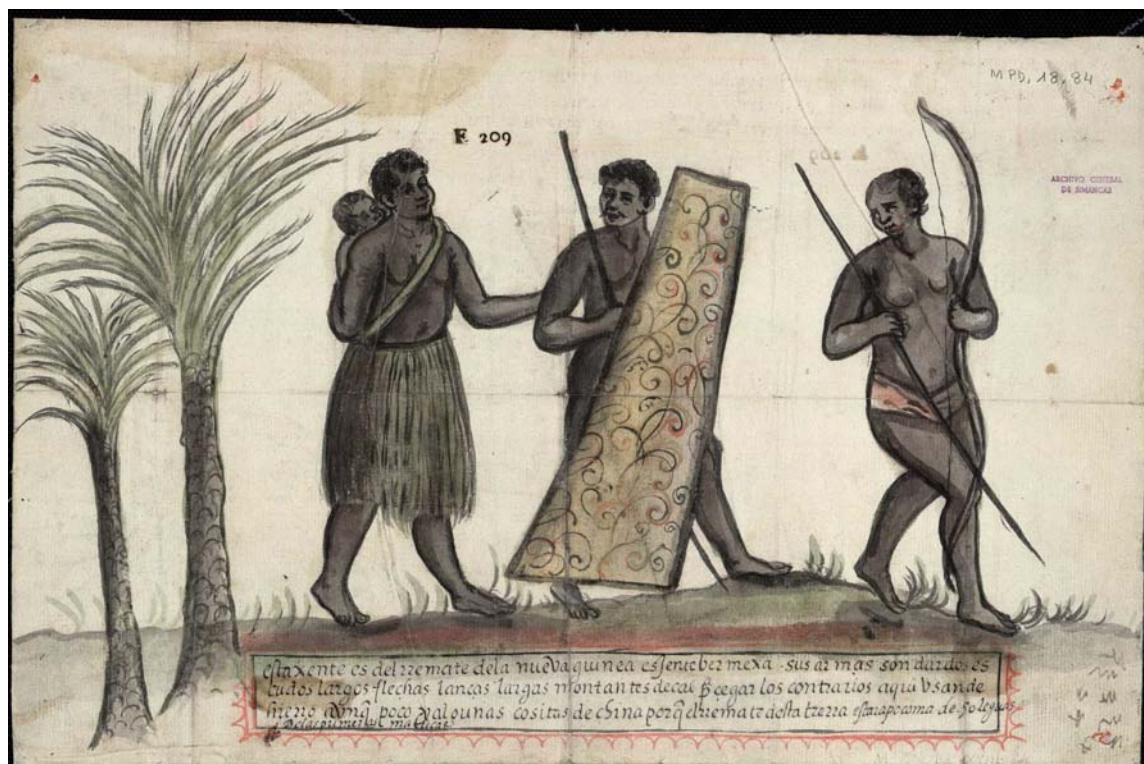 MPD, 18, 84
F 209
ARCHIVO GENERAL
DE SIMANCAS
esta xente es del rremate dela nueva guinea es jente bermexa. sus armas son dardos es
cudos largos flechas lanças largas montantes de cal cegar los contrarios aqui vsan de
hierro poco y algunas cositas de china porq el rremate desta tierra estara poco ma de 50 leguas